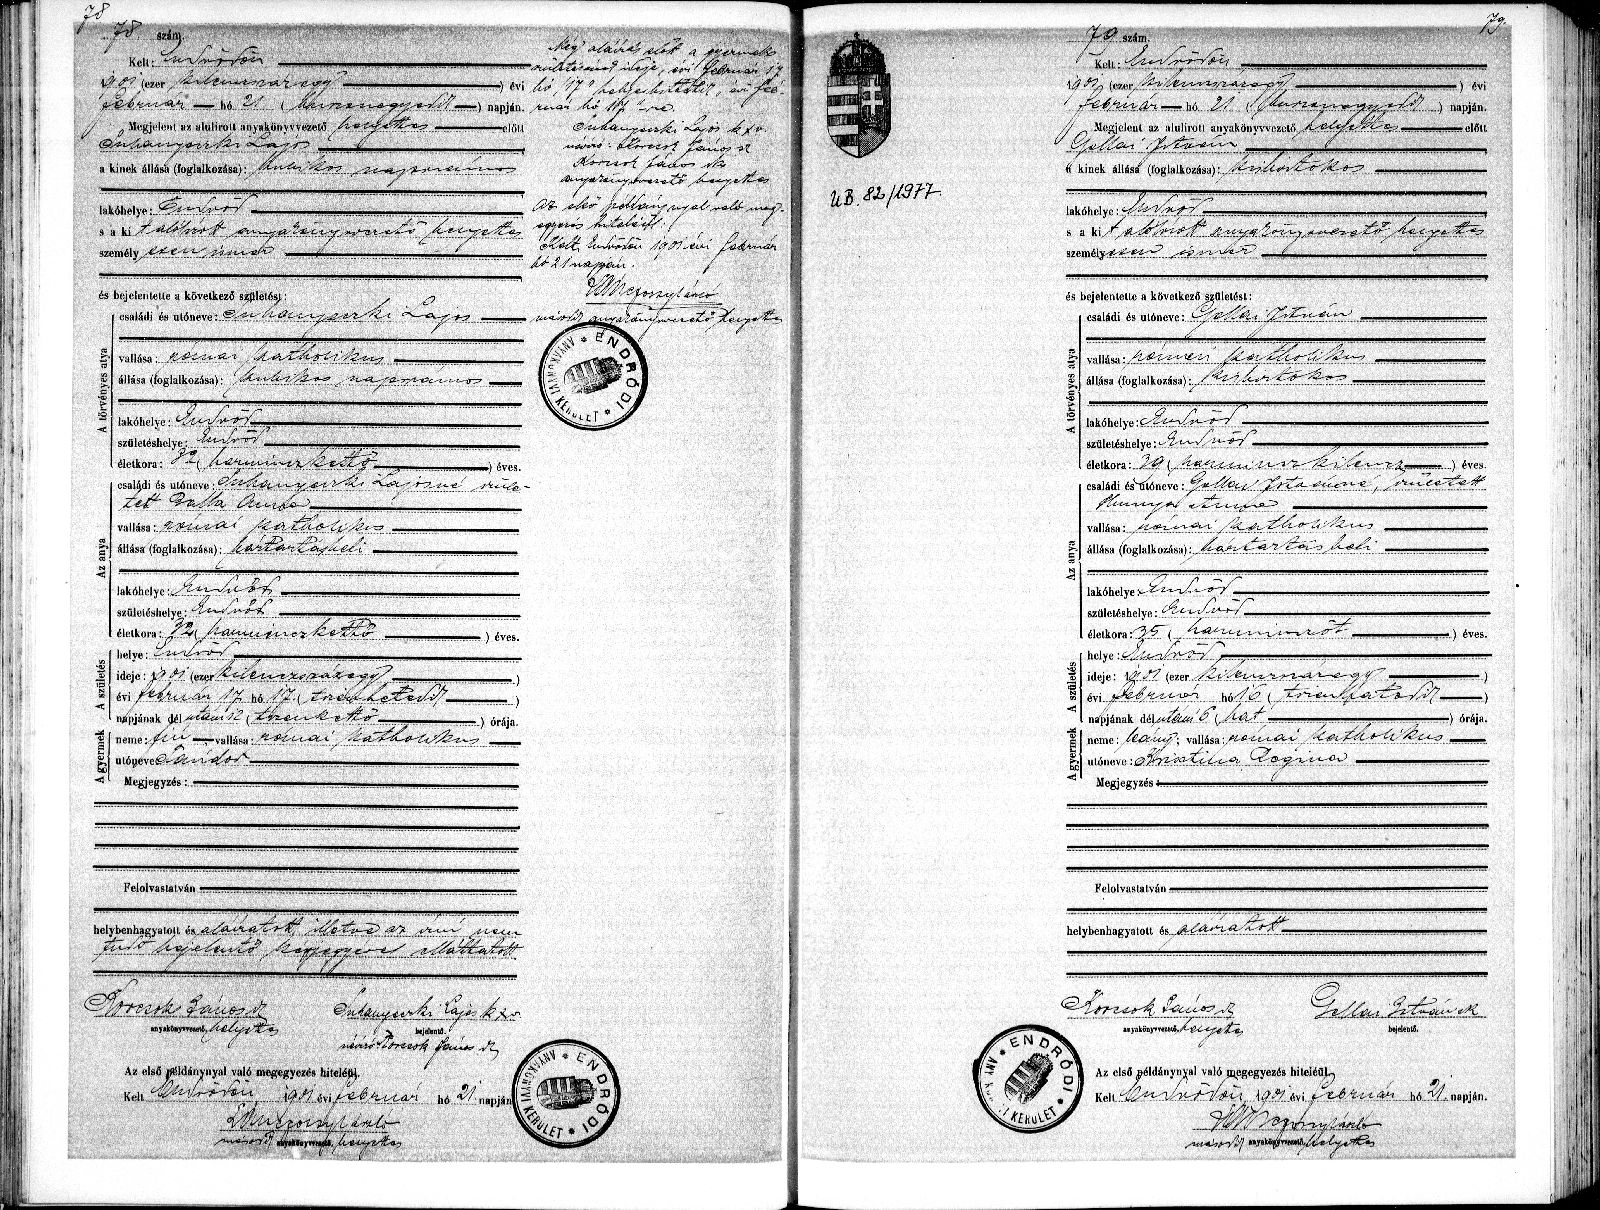 78
78 szám.
Kelt: Endrődön
1901 (ezer kilenczszázegy) évi
február hó 21. (huszonegyedik) napján.
Megjelent az alulirott anyakönyvvezető helyettes előtt
Suhanyeczki Lajos
a kinek állása (foglalkozása): kubikos napszámos
lakóhelye: Endrőd
s a kit alólirott anyakönyvvezető helyettes
személyesen ismer
és bejelentette a következő születést:
A törvényes atya
családi és utóneve: Suhanyeczki Lajos
vallása: római katholikus
állása (foglalkozása): kubikos napszámos
lakóhelye: Endrőd
születéshelye: Endrőd
életkora: 32 (harminczkettő) éves.
Az anya
családi és utóneve: Suhanyeczki Lajosné szüle-
tett Dalla Anna
vallása: római katholikus
állása (foglalkozása): háztartásbeli
lakóhelye: Endrőd
születéshelye: Endrőd
életkora: 32 (harminczkettő) éves.
A születés
helye: Endrőd
ideje: 1901 (ezer kilenczszázegy)
évi február 17 hó 17 (tizenhetedik)
napjának dél utáni 12 (tizenkettő) órája.
A gyermek
neme: fiu vallása: római katholikus
utóneve: Sándor
Megjegyzés:
Felolvastatván
helybenhagyatott és aláiratott, illetve az irni nem
tudó bejelentő kézjegyével elláttatott.
Korcsok János sk
anyakönyvvezető, helyettes
Suhanyeczki Lajos k x v
bejelentő.
névíró Korcsok János sk
Az első példánynyal való megegyezés hiteléül.
Kelt Endrődön, 1901 évi február hó 21. napján
másod anyakönyvvezető, helyettes
ENDRŐDI ANYAKÖNYVI KERÜLET
Még aláírás előtt a gyermek
születésének ideje, évi február 17
hó, 17 helyesbittetett, évi feb-
ruár hó 17-re.
Suhanyeczki Lajos k x v
névíró Korcsok János sk
Korcsok János sk
anyakönyvvezető helyettes
Az első példánynyal való meg-
egyezés hiteléül.
Kelt, Endrődön 1901 évi február
hó 21 napján.
másod anyakönyvvezető helyettes
ENDRŐDI ANYAKÖNYVI KERÜLET
U.B. 82/1977.
79.
79 szám.
Kelt: Endrődön
1901 (ezer kilenczszázegy) évi
február hó 21. (huszonegyedik) napján.
Megjelent az alulirott anyakönyvvezető helyettes előtt
Gellai István
a kinek állása (foglalkozása): kisbirtokos
lakóhelye: Endrőd
s a kit alólirott anyakönyvvezető helyettes
személyesen ismer
és bejelentette a következő születést:
A törvényes atya
családi és utóneve: Gellai István
vallása: római katholikus
állása (foglalkozása): kisbirtokos
lakóhelye: Endrőd
születéshelye: Endrőd
életkora: 39 (harminczkilencz) éves.
Az anya
családi és utóneve: Gellai Istvánné, született
Hunya Anna
vallása: római katholikus
állása (foglalkozása): háztartásbeli
lakóhelye: Endrőd
születéshelye: Endrőd
életkora: 35 (harminczöt) éves.
A születés
helye: Endrőd
ideje: 1901 (ezer kilenczszázegy)
évi február hó 16 (tizenhatodik)
napjának délutáni 6 (hat) órája.
A gyermek
neme: leány; vallása: római katholikus
utóneve: Krisztina Regina
Megjegyzés:
Felolvastatván
helybenhagyatott és aláiratott
Korcsok János sk
anyakönyvvezető, helyettes
Gellai István sk
bejelentő.
Az első példánynyal való megegyezés hiteléül,
Kelt Endrődön, 1901 évi február hó 21. napján.
másod anyakönyvvezető, helyettes
ENDRŐDI ANYAKÖNYVI KERÜLET